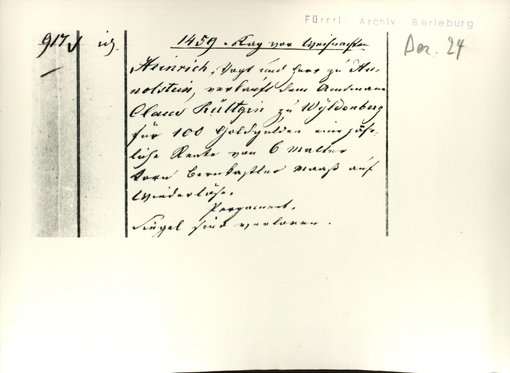 Fürstl. Archiv Berleburg
Dez. 24
917 id. 1459. Tag vor Weihnachten
Heinrich, Vogt und Herr zu Hu-
nolstein, verkauft dem Amtmann
Claus Küllgin zu Wyldenberg
für 100 Goldgulden eine jähr-
liche Rente von 6 Malter
Korn Bernkastler Maaß auf
Wiederlöse.
Pergament.
Siegel sind verloren.